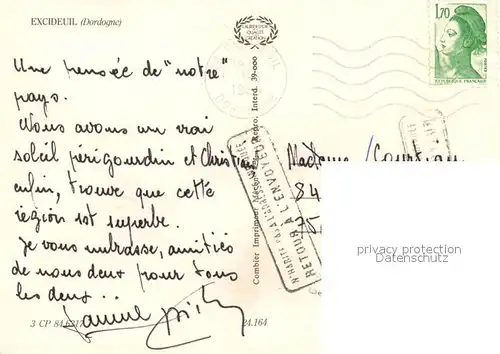 EXCIDEUIL (Dordogne)
LAURÉAT DE
LA QUALITÉ
CRÉATION
1,70
REPUBLIQUE FRANÇAISE
Une pensée de "notre"
pays.
Nous avons un vrai
soleil périgourdin et Christian
enfin, trouve que cette
région est superbe.
Je vous embrasse, amitiés
de nous deux pour tous
les deux...
Madame
84
RETOUR A L'ENVOYEUR
N'HABITE PAS A L'ADRESSE
Combier Imprimeur Mâcon Repro. Interd. 39-000
privacy protection
Datenschutz
3. CP 84.6317
24.164